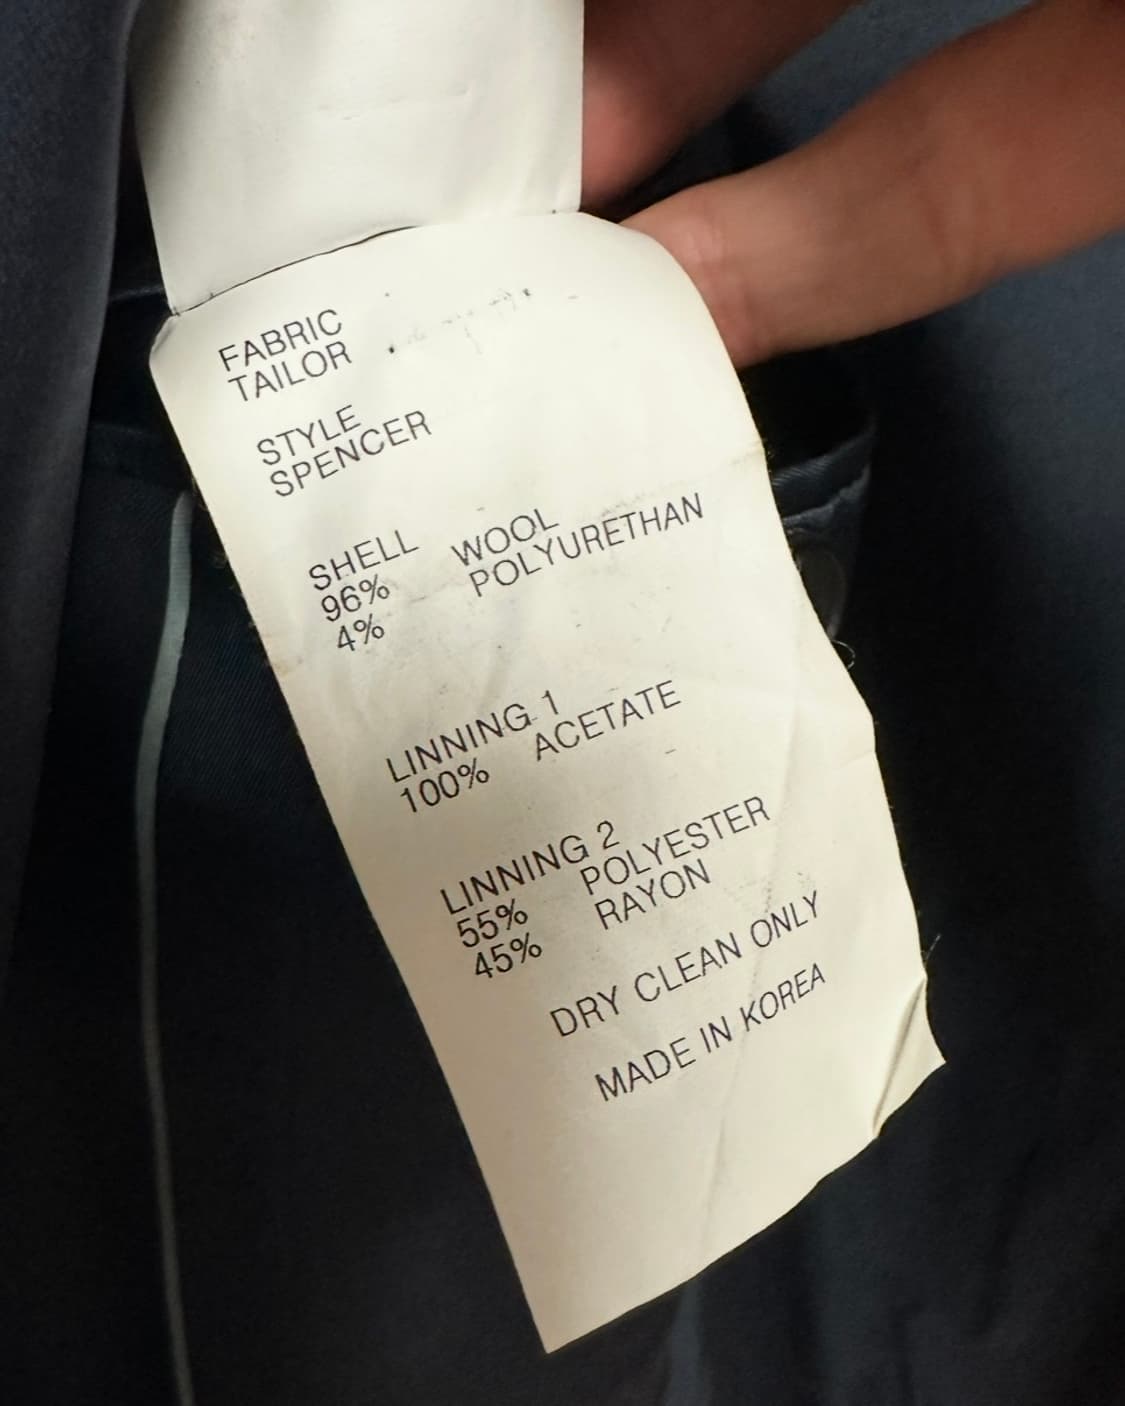 FABRIC
TAILOR
STYLE
SPENCER
SHELL
96% WOOL
4% POLYURETHAN
LINNING 1
100% ACETATE
LINNING 2
55% POLYESTER
45% RAYON
DRY CLEAN ONLY
MADE IN KOREA